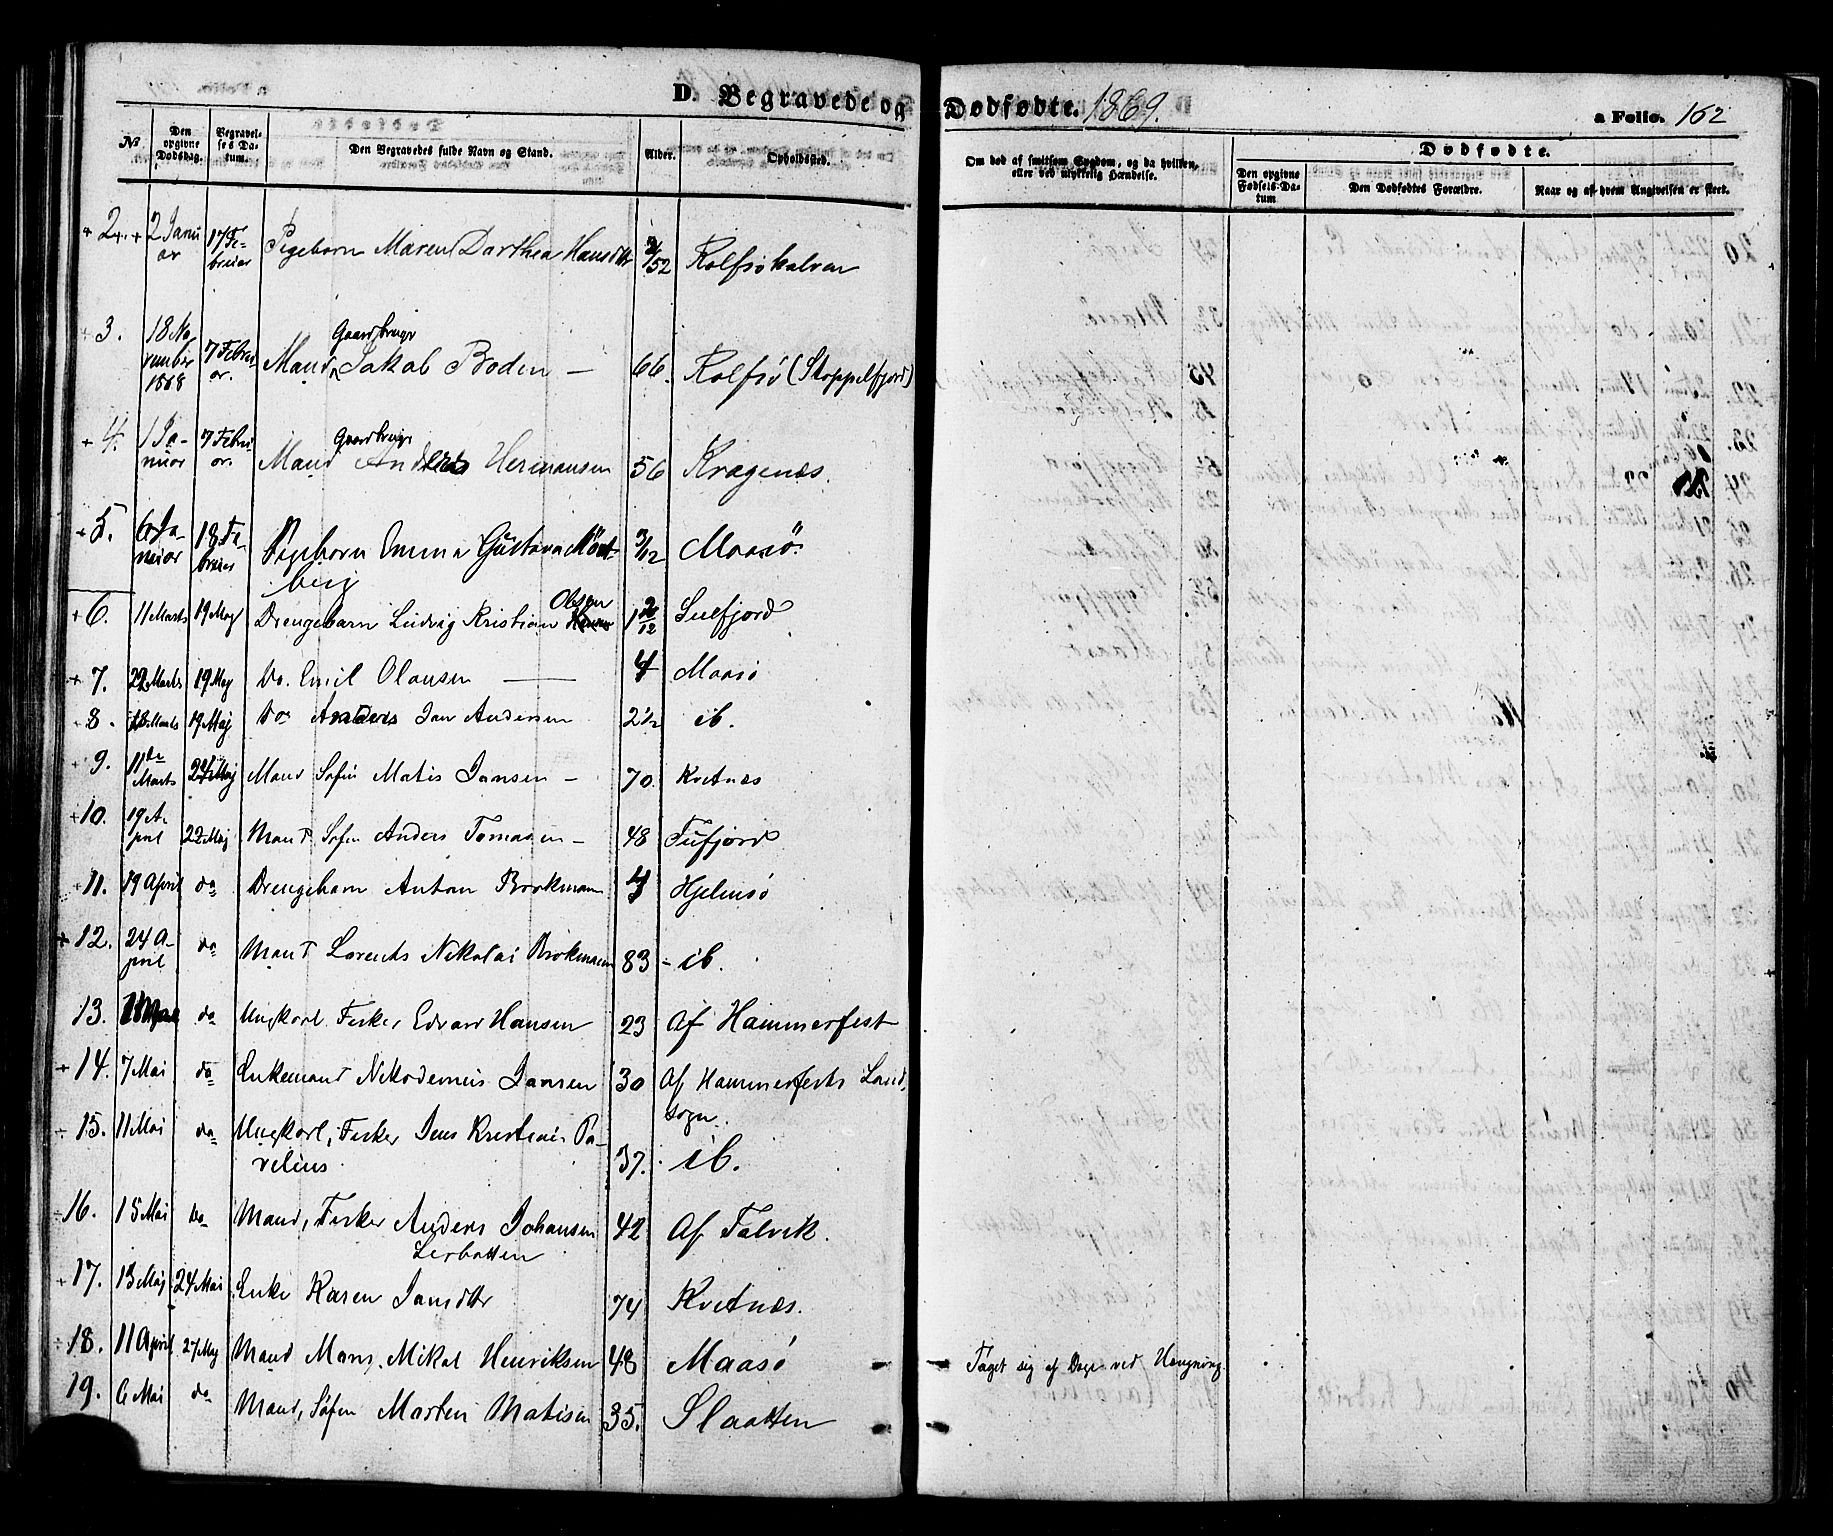 D. Begravede og Dødfødte. 1869.
a Folio. 162
No.
Den opgivne Dødsdag.
Begravelses Datum.
Den Begravedes fulde Navn og Stand.
Alder.
Opholdssted.
Om død af smitsom Sygdom, og da hvilken, eller ved ulykkelig Hændelse.
Dødfødte.
Den opgivne Fødsels-Datum
Den Dødfødtes Forældre.
Naar og af hvem Angivelsen er skeet.
+ 2. + 2 Januar 17 Februar Pigebarn Maren Darthea Hansdtr 3/52 Rolfsøhalven
3. 18 November 1868 7 Februar. Mand, Gaardbruger Jakob Boden — 66. Rolfsø (Skoppelfjord)
+ 4. 1 Januar 7 Februar. Mand Gaardbruger Anders Hermansen 56 Kragenæs.
+ 5. 6 Januar 18 Februar Pigebarn Emma Gustava Mørtberg 3/12 Maasø.
+ 6. 11 Marts 19 Maj Drengebarn Ludvig Kristian Olsen 1 2/12
+ 7. 22 Marts 19 Maj Do. Emil Olausen — 4 Maasø
+ 8. 18 Marts 19 Maj Do Anders Jan Andersen 2 1/2 ib.
9. 11de Marts 22 Maj Mand Søfin Matis Jansen — 70. Kvitnæs
+ 10. 19 April 22 Maj Mand Søfin Anders Tomasen — 48 Tufjord
+ 11. 19 April do Drengebarn Anton Brokmann 4 Hjelmsø
+ 12. 24 April do Mand Lorents Nikolai Brokmann 83 — ib.
13. do Ungkarl Fisker Edvard Hansen 23 Af Hammerfest
+ 14. 7 Mai do Enkemand Nikodemus Jansen 30 Af Hammerfests Landsogn.
15. 11 Mai do Ungkarl, Fisker Jens Kristian Pavelius. 37. ib.
16. 15 Mai Do Mand, Fisker Anders Johansen Lerbotten 42 Af Talvik.
+ 17. 13 Maj 24 Mai Enke Karen Jansdtr 74 Kvitnæs.
18. 11 April 27 Maj Mand Mons Mikal Henriksen 48 Maasø Taget sig af Dage ved Hængning.
19. 6 Mai do Mand, Søfin Morten Matisen 35. Slaatten